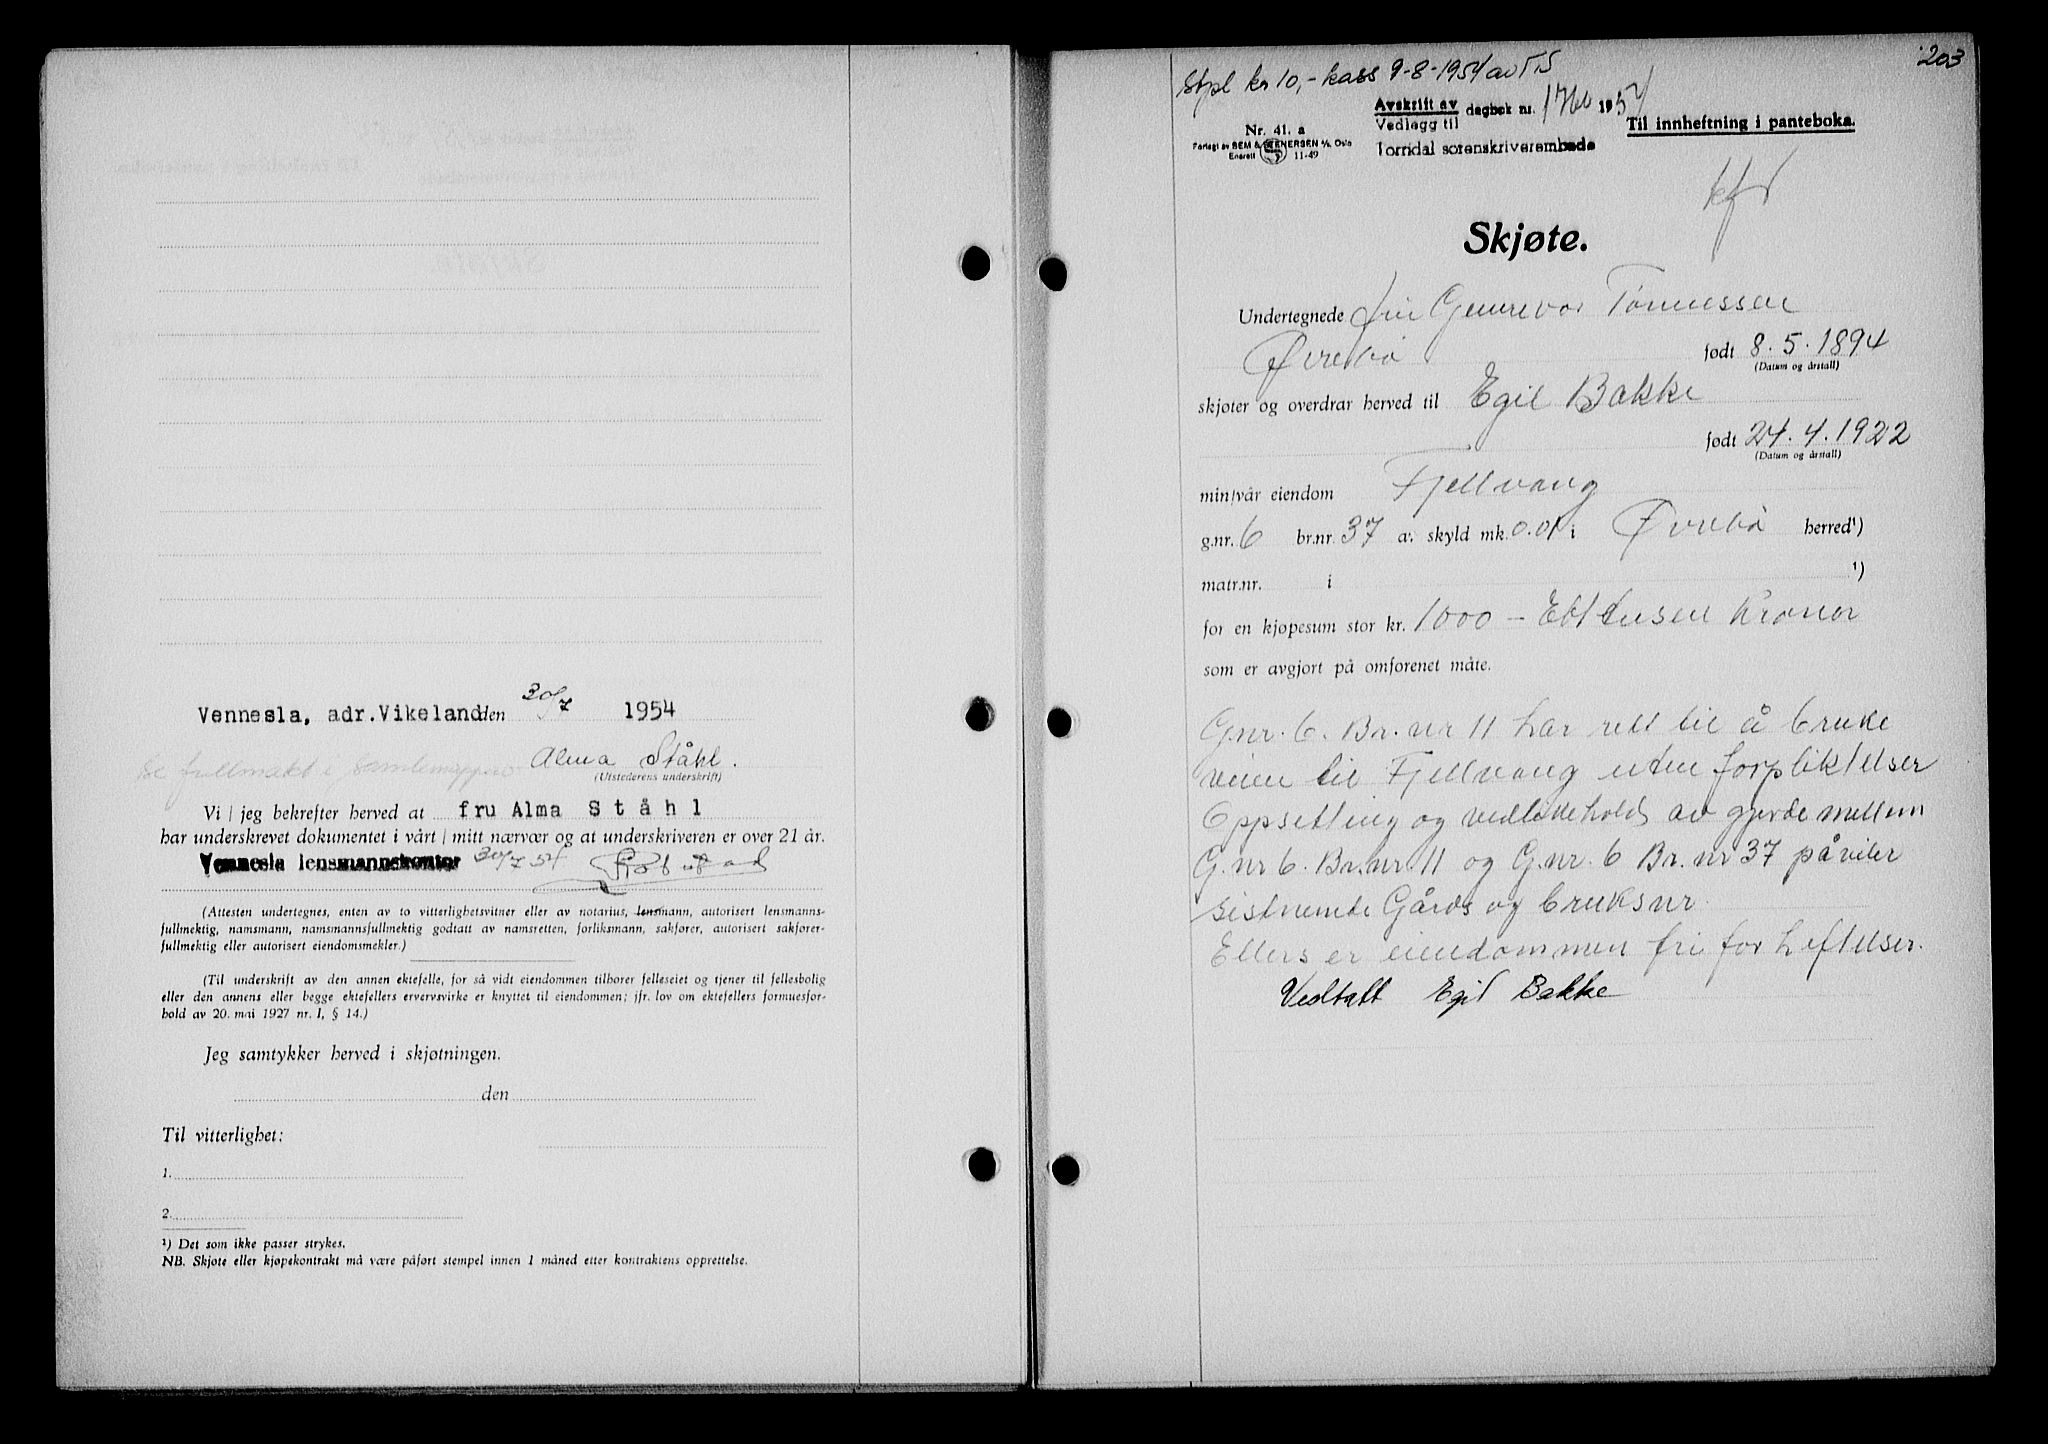 Vennesla, adr. Vikeland den 30/7 1954
se fullmakt i samlemappen Alma Ståhl.
(Utstederens underskrift)
Vi / jeg bekrefter herved at fru Alma Ståhl
har underskrevet dokumentet i vårt / mitt nærvær og at underskriveren er over 21 år.
Vennesla lensmannskontor 30/7 54
(Attesten undertegnes, enten av to vitterlighetsvitner eller av notarius, lensmann, autorisert lensmanns-
fullmektig, namsmann, namsmannsfullmektig godtatt av namsretten, forliksmann, sakfører, autorisert sakfører-
fullmektig eller autorisert eiendomsmekler.)
(Til underskrift av den annen ektefelle, for så vidt eiendommen tilhører felleseiet og tjener til fellesbolig
eller den annens eller begge ektefellers ervervsvirke er knyttet til eiendommen; jfr. lov om ektefellers formuesfor-
hold av 20. mai 1927 nr. 1, § 14.)
Jeg samtykker herved i skjøtningen.
den
Til vitterlighet:
1.
2.
¹) Det som ikke passer strykes.
NB. Skjøte eller kjøpekontrakt må være påført stempel innen 1 måned etter kontraktens opprettelse.
203
Stpl kr 10,- kass 9-8-1954 av TS
Avskrift av
Vedlegg til dagbok nr. 1954
Torridal sorenskriverembede
Til innheftning i panteboka.
Nr. 41. a
Forlagt av SEM & STENERSEN A/S, Oslo
Enerett 11-49
kfr
Skjøte.
Undertegnede fru Gunvor Tønnessen
Øvrebø født 8.5.1894
(Datum og årstall)
skjøter og overdrar herved til Egil Bakke
født 24.4.1922
(Datum og årstall)
min/vår eiendom Fjellvang
g.nr. 6 br.nr. 37 av skyld mk. 0.01 i Øvrebø herred¹)
matr.nr. i ¹)
for en kjøpesum stor kr. 1000 - Ett tusen kroner
som er avgjort på omforenet måte.
G.nr. 6. Br.nr 11 har rett til å bruke
veien til Fjellvang uten forpliktelser
Oppsetting og vedlikeholds av gjerde mellom
G.nr 6. Br.nr. 11 og G.nr. 6 Br.nr 37 påviler
sistnemte Gårds og bruksnr.
Ellers er eiendommen fri for heftelser.
Vedtatt Egil Bakke